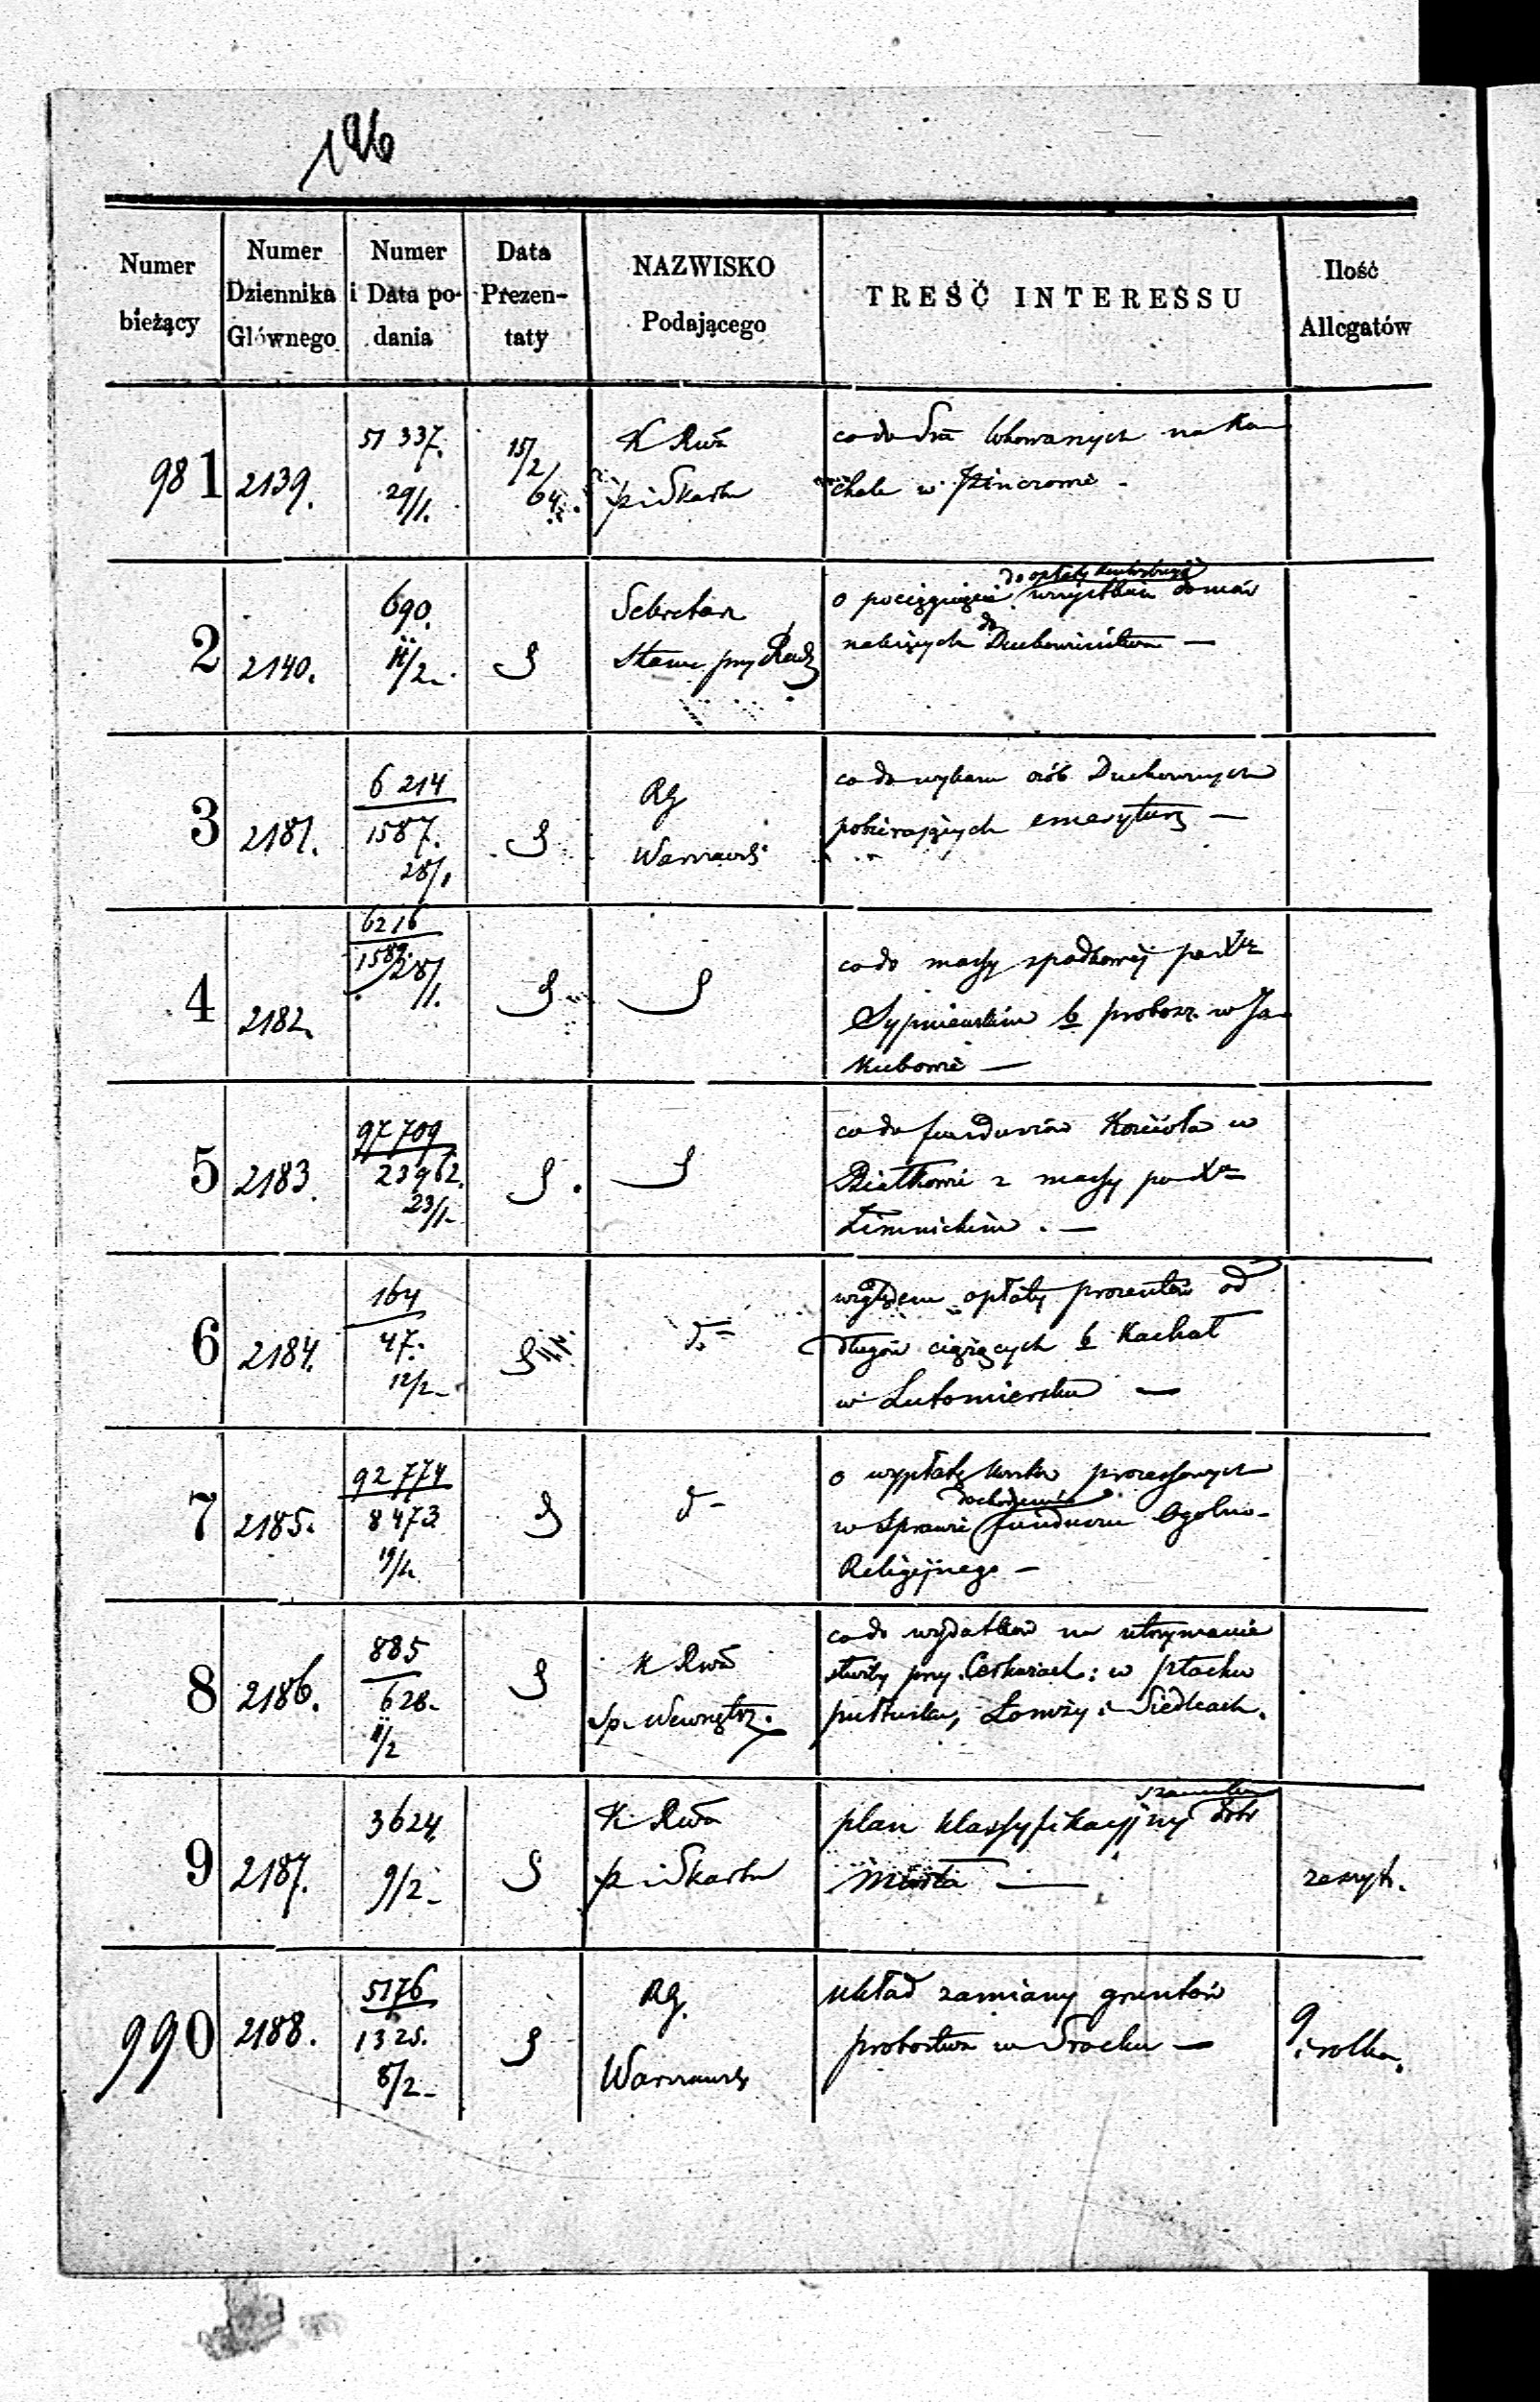 196
Numer bieżący
Numer Dziennika Głównego
Numer i Data podania
Data Prezentaty
NAZWISKO Podającego
TREŚĆ INTERESSU
Ilość Allegatów
981 2139. 51 337. 29/1. 15/2 64. K Rwa
p i Skarbu
co do Sm lokowanych na Ka
chale w
2 2140. 690. 11/2 Sekretarz
Stanu przy Radz
do opłaty kontrybucyi
o pociągnięcie wszystkich domów
należących do Duchowieństwa —
3 2181. 6 214 1587. 28/1 RG
Warszawsk
co do wykazu osób Duchownych
pobierających emeryturę —
4 2182. 6216 1589. 28/1.
co do massy spadkowej po Xdz
Sypniewskim b probosz. w Ja
kubowie —
5 2183. 97 709 23962. 23/1
co do funduszów Kościoła w
z massy po Xdz
Zimnickim. —
6 2184. 164 47. 12/2 do
względem opłaty procentów od
długów ciążących b Kachał
w Lutomiersku —
7 2185. 92 774 8473 d
o wypłatę kosztów processowych
w sprawie dochodzenia funduszu Ogólno-
Religijnego —
8 2186. 885 628. 11/2 K Rwa
Sp. Wewnętrz.
co do wydatków na utrzymanie
służby przy Cerkwiach: w Płocku
Pułtusku, Łomży i Siedlcach.
9 2187. 3624 9/2 K Rwa
p i Skarbu
plan klassyfikacyjny dóbr
zeszyt.
990 2188. 5176 1325. 8/2 RG.
Warszawsk
układ zamiany gruntów
probostwa w Srocku —
9 i rolka.